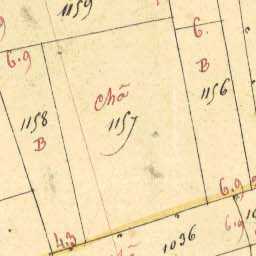 1159
6.9
6.
B
1156
Chã
1157
1158
B
6.9
4.3
6.9
1036